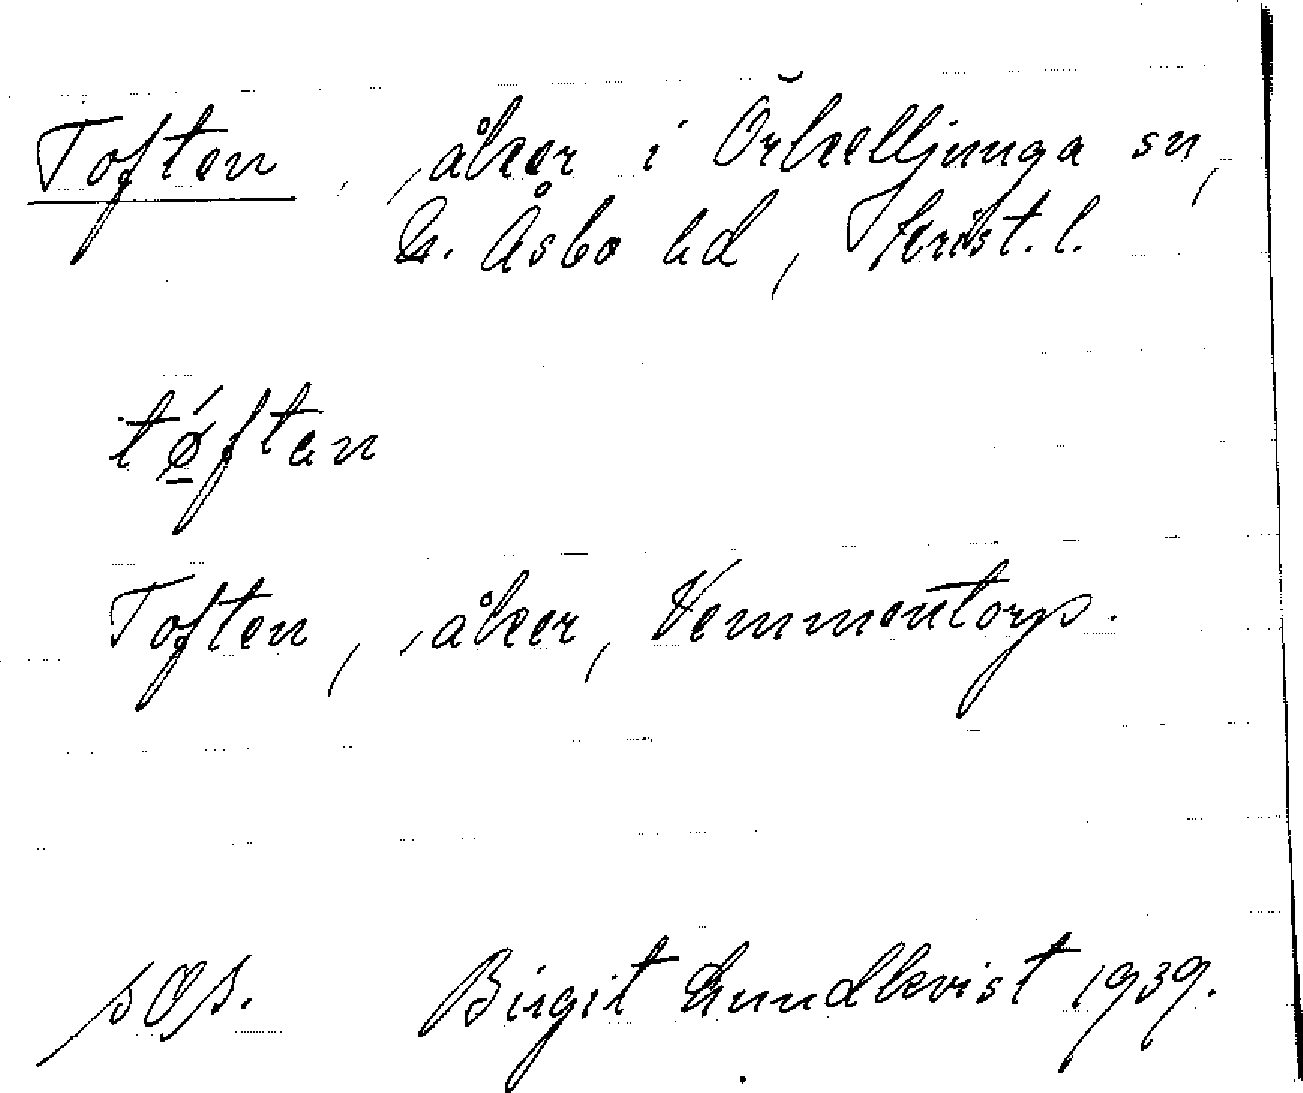 Toften, åker i Örkelljunga sn,
N. Åsbo hd, Krist. l.
tǿften
Toften, åker, Vemmentorp.
Birgit Lundkvist 1939.